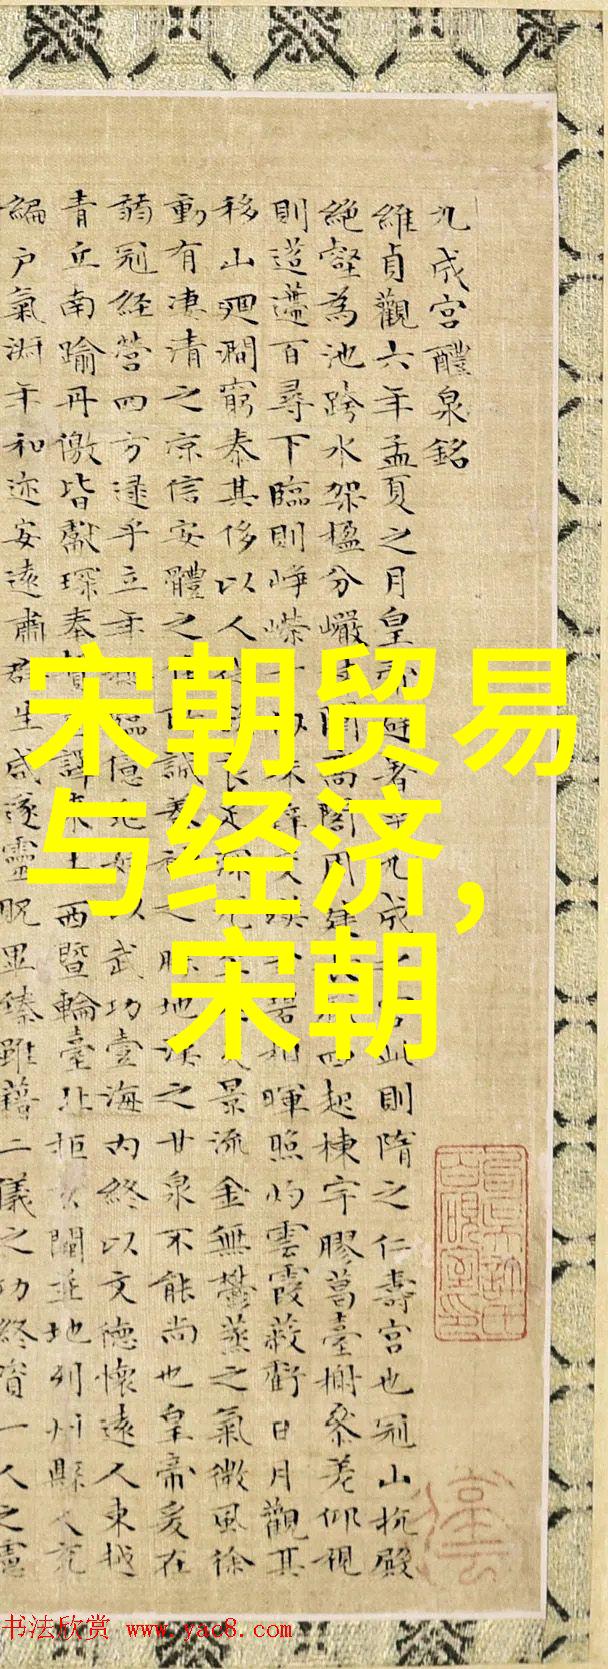 九成宮醴泉銘
維貞觀六年孟夏之月皇九成宮此則隋之仁壽宮也冠山抗殿
絶壑為池跨水架楹分巖閣周建起棟宇膠葛臺榭參差仰視
則迢遰百尋下臨則崢嶸相暉照灼雲霞蔽虧日月觀其
移山迴澗窮泰其侈以人景流金無鬱蒸之氣微風徐
動有凄清之凉信安體之誠養之地漢之甘泉不能尚也皇帝爰在
弱冠經營四方逮乎立年臨億以武功壹海内終以文德懷遠人東越
青丘南踰丹徼皆獻琛奉譯來西暨輪臺北拒玄闕並地列州縣人充
編戶氣淑年和迩安遠肅群生咸遂靈貺畢臻雖藉二儀之功終資一人之慮
宋朝贸易
与经济,
宋朝
书法欣赏 www.yac8.com